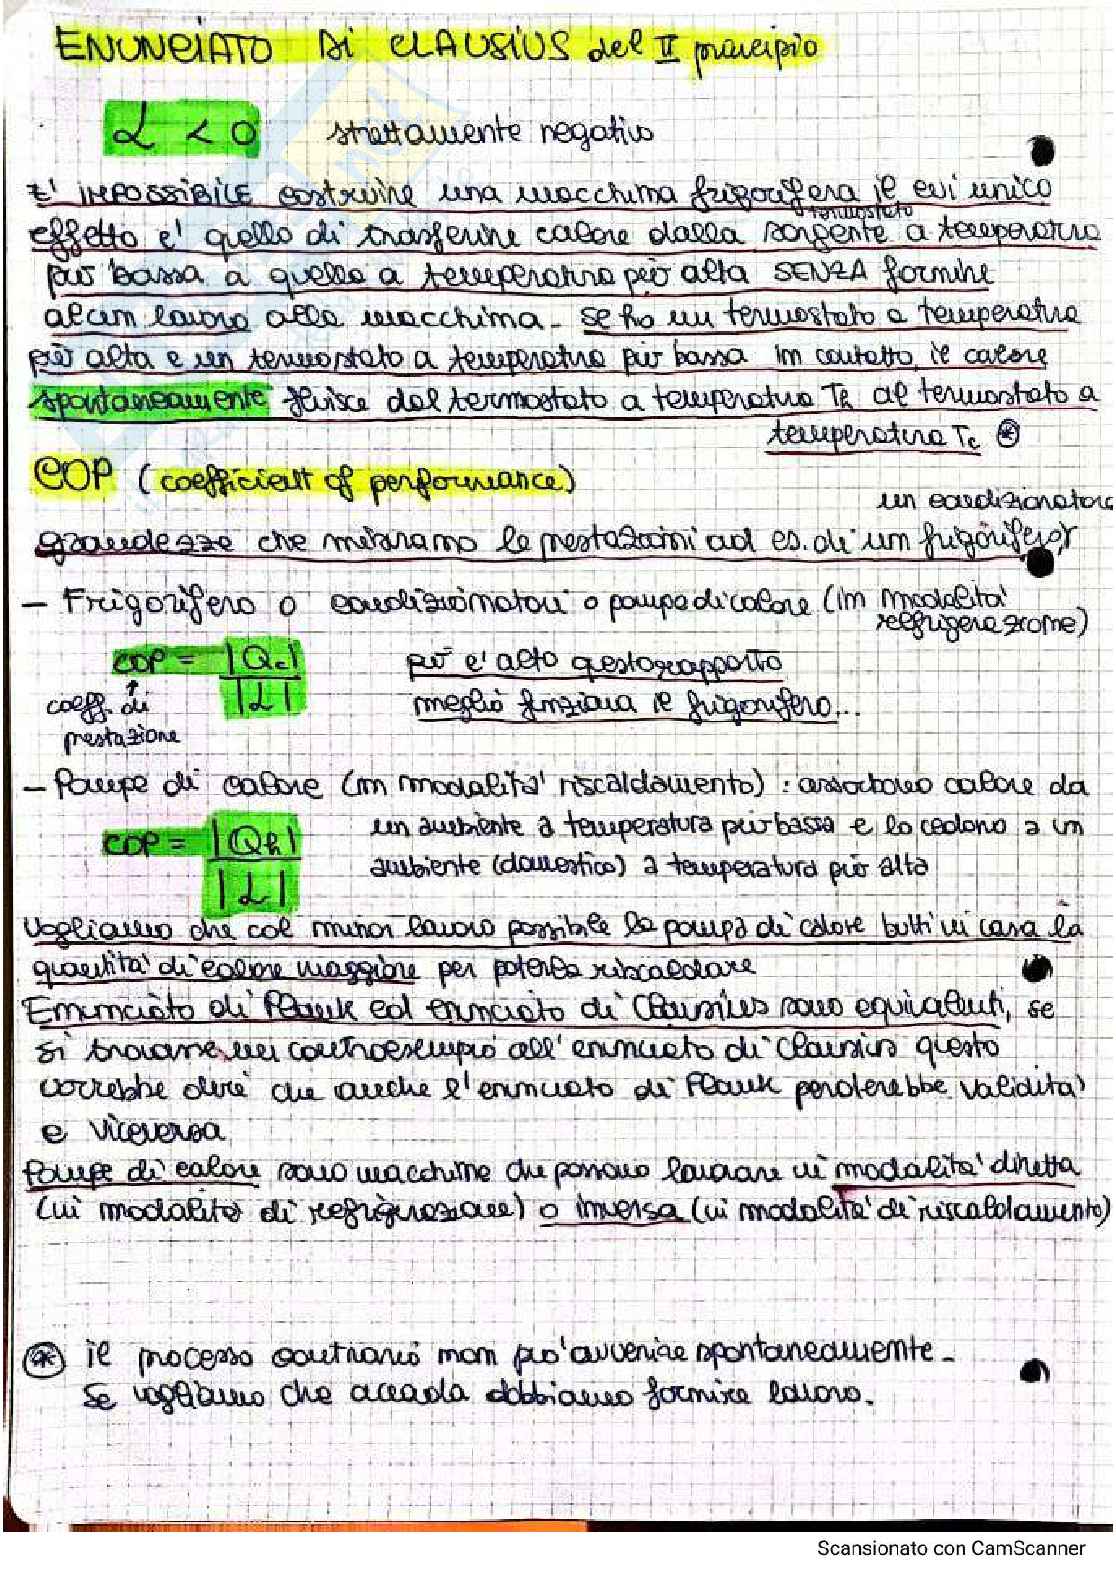 ENUNCIATO DI CLAUSIUS del II principio
L < 0 strettamente negativo
E' IMPOSSIBILE costruire una macchina frigorifera il cui unico
termostato
effetto e' quello di trasferire calore dalla sorgente a temperatura
più bassa a quella a temperatura più alta SENZA fornire
alcun lavoro alla macchina. Se ho un termostato a temperatura
più alta e un termostato a temperatura più bassa in contatto, il calore
spontaneamente fluisce dal termostato a temperatura Th al termostato a
temperatura Tc ⊛
COP (coefficient of performance)
un condizionatore
grandezze che misurano le prestazioni ad es. di un frigorifero,
- Frigorifero o condizionatori o pompe di calore (in modalità
refrigerazione)
COP = |Qc| / |L| più e' alto questo rapporto
coeff. di meglio funziona il frigorifero...
prestazione
- Pompe di calore (in modalita' riscaldamento) : assorbono calore da
COP = |Qh| / |L| un ambiente a temperatura più bassa e lo cedono a un
ambiente (domestico) a temperatura più alta
Vogliamo che col minor lavoro possibile la pompa di calore butti in casa la
quantita' di calore maggiore per poterla riscaldare
Enunciato di Plank ed enunciato di Clausius sono equivalenti, se
si trovasse un controesempio all'enunciato di Clausius questo
vorrebbe dire che anche l'enunciato di Plank perderebbe validita'
e viceversa
Pompe di calore sono macchine che possono lavorare in modalita' diretta
(in modalità di refrigerazione) o inversa (in modalita' di riscaldamento)
⊛ il processo contrario non può avvenire spontaneamente.
Se vogliamo che accada dobbiamo fornire lavoro.
Scansionato con CamScanner